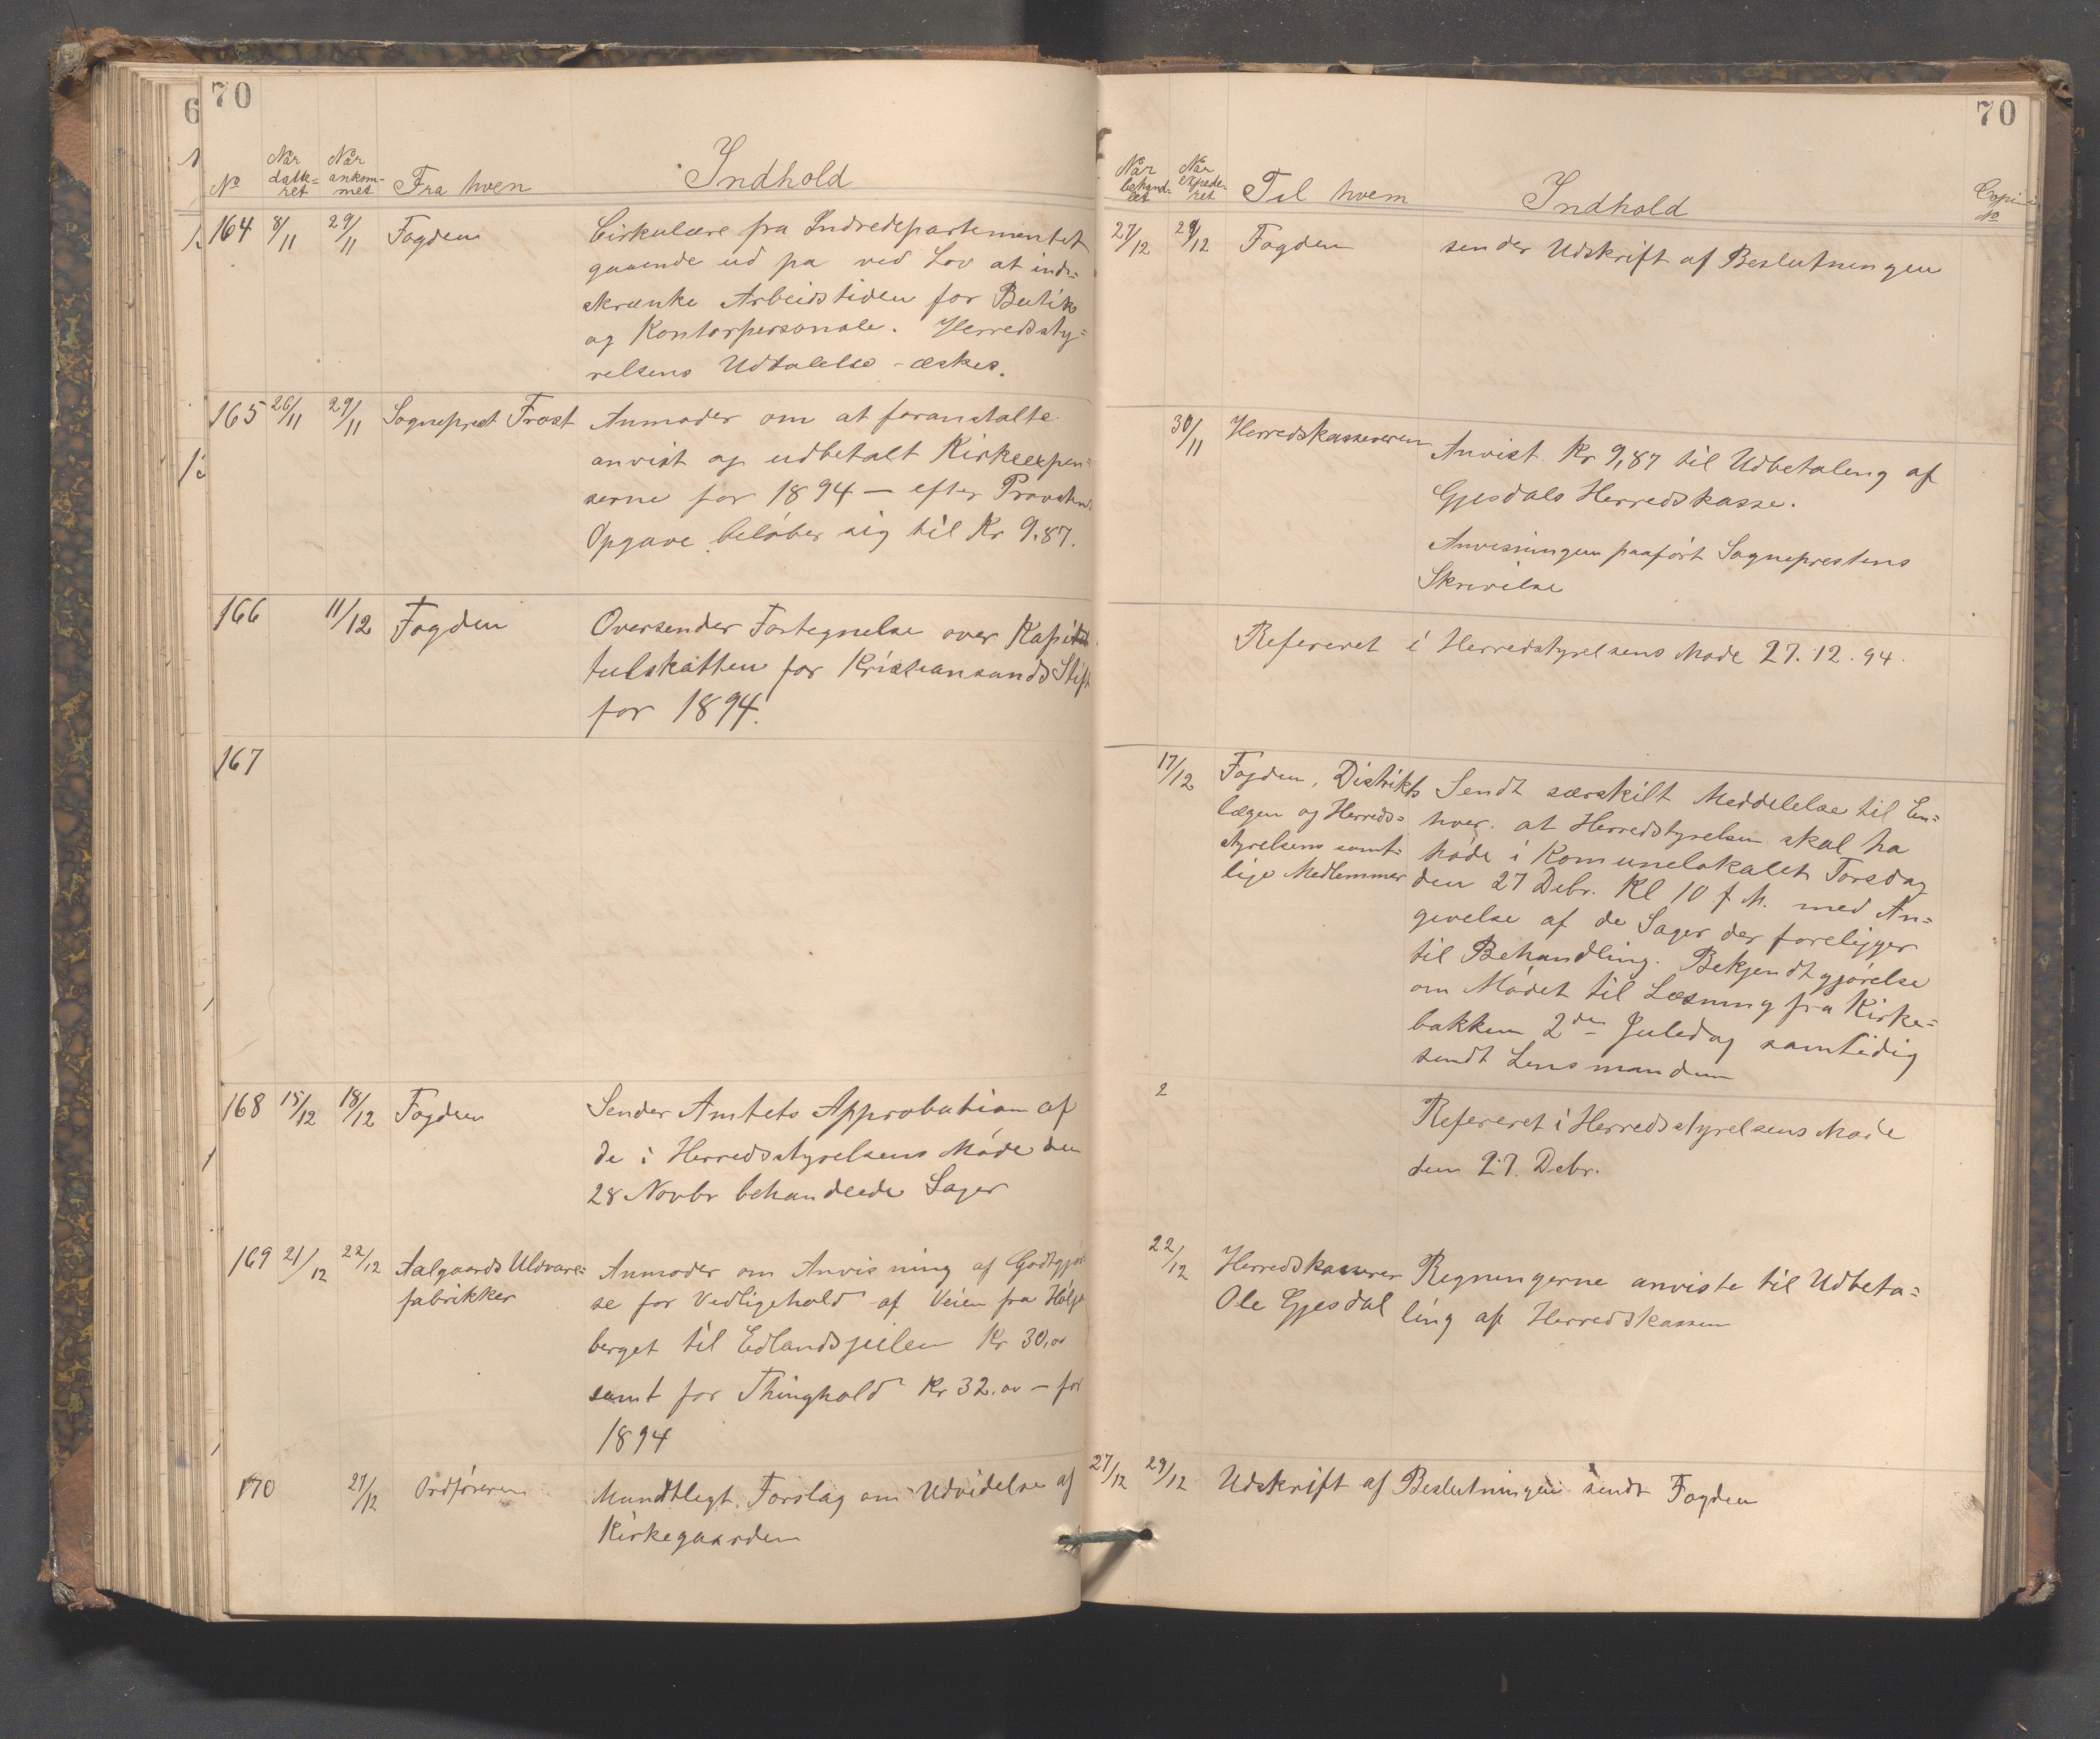 70
No
Når datte=ret
Når ankom=met
Fra hvem
Indhold
164 8/11 29/11 Fogden
Cirkulære fra Indredepartementet
gaaende ud pa ved Lov at ind=
skrænke Arbeidstiden for Butik
og Kontorpersonale. Herredssty=
relsens Udtalelse æskes.
165 26/11 29/11 Sogneprest Frost
Anmoder om at foranstalte
anvist og udbetalt Kirkeexpen=
serne for 1894 — efter Provsten
Opgave beløber sig til Kr 9.87.
166 11/12 Fogden
Oversender Fortegnelse over Kapit
tulskatten for Kristiansands Stift
for 1894.
167
168 15/12 18/12 Fogden
Sender Amtets Approbation af
de i Herredsstyrelsens Møde den
28 Novbr behandlede Sager
169 21/12 22/12 Aalgaards Uldvare=
fabrikker
Anmoder om Anvisning af Godtgjør
se for Vedligehold af Veien fra
berget til Kr 30,00
samt for Thinghold Kr 32.00 — for
1894
170 27/12 Ordføreren
Mundtlegt Forslag om Udvidelse af
Kirkegaarden
70
Når behand=let
Når expede=ret
Til hvem
Indhold
No
27/12 29/12 Fogden
sender Udskrift af Beslutningen
30/11 Herredskassereren
Anvist Kr 9,87 til Udbetaling af
Gjesdals Herredskasse.
Anvisningen paaført Sogneprestens
Skrivelse
Refereret i Herredstyrelsens Møde 27.12.94.
17/12 Fogden, Distrikts
lægen og Herreds=
styrelsens samt=
lige Medlemmer
Sendt særskilt Meddelelse til En=
hver. at Herredstyrelsen skal ha
Møde i Komunelokalet Torsdag
den 27 Debr. Kl 10 f M. med An=
givelse af de Sager der foreligger
til Behandling. Bekjendtgjørelse
om Mødet til Læsning fra Kirke=
bakken 2den Juledag samtidig
sendt Lensmanden
2
Refereret i Herredsstyrelsens Møde
den 27. Debr.
22/12 Herredskasserer
Ole Gjesdal
Regningerne anviste til Udbeta=
ling af Herredskassen
27/12 29/12 Udskrift af Beslutningen sendt Fogden